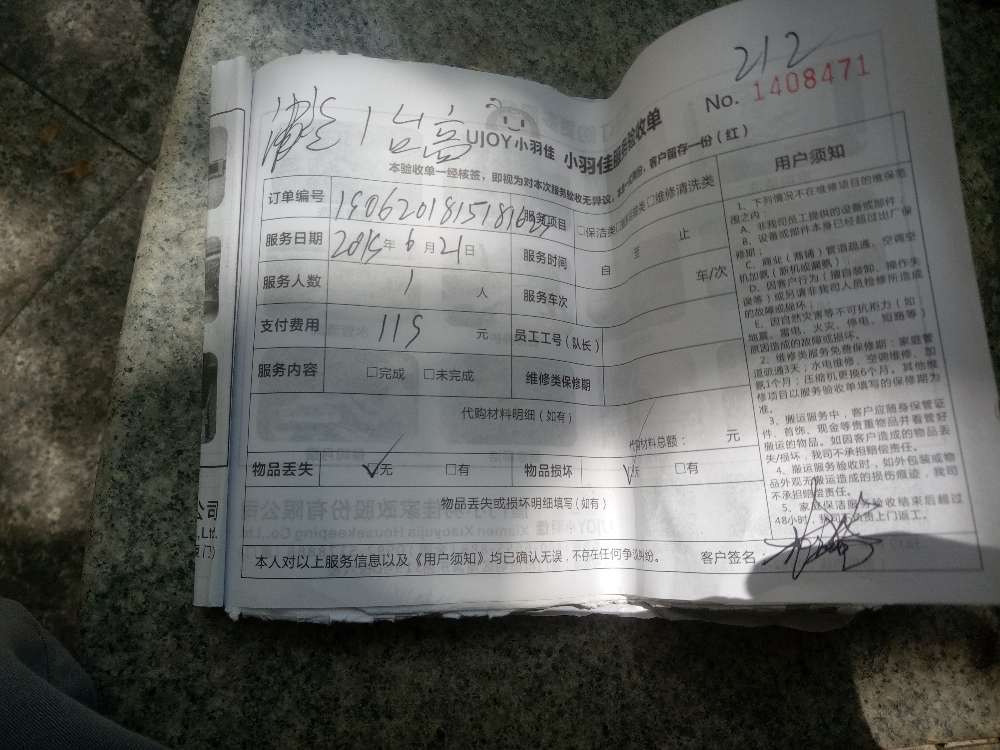 212
No. 1408471
UJOY小羽佳 小羽佳服务验收单
本验收单一经核签，即视为对本次服务验收无异议，客户留存一份（红）
订单编号
服务项目 □保洁类 □维修清洗类
服务日期 年 6 月 21 日
服务时间 自 至 止
服务人数 1 人
服务车次 车/次
支付费用 119 元
员工工号（队长）
服务内容 □完成 □未完成
维修类保修期
代购材料明细（如有）
代购材料总额： 元
物品丢失 ✓无 □有
物品损坏 ✓无 □有
物品丢失或损坏明细填写（如有）
本人对以上服务信息以及《用户须知》均已确认无误，不存在任何争议纠纷。 客户签名：
用户须知
1、下列情况不在维修项目的维保范
围之内：
A、非我司员工提供的设备或部件；
B、设备或部件本身已经超过出厂保
修期；
C、商业（商铺）管道疏通、空调空
机加氨（新机或漏氨）
D、因客户行为（擅自装卸、操作失
误等）或另请非我司人员检修所造成
的故障或损坏；
E、因自然灾害等不可抗拒力（如
地震、雷电、火灾、停电、短路等）
原因造成的故障或损坏。
2、维修类服务免费保修期：家庭管
道疏通3天；水电维修、空调维修、加
氨1个月；压缩机更换6个月。其他维
修项目以服务验收单填写的保修期为
准。
3、搬运服务中，客户应随身保管证
件、首饰、现金等贵重物品并看管好
搬运的物品。如因客户造成的物品丢
失/损坏，我司不承担赔偿责任。
4、搬运服务验收时，如外包装或物
品外观无搬运造成的损伤痕迹，我司
不承担赔偿责任。
5、家庭保洁服务验收结束后超过
48小时，我司不负责上门返工。
公司